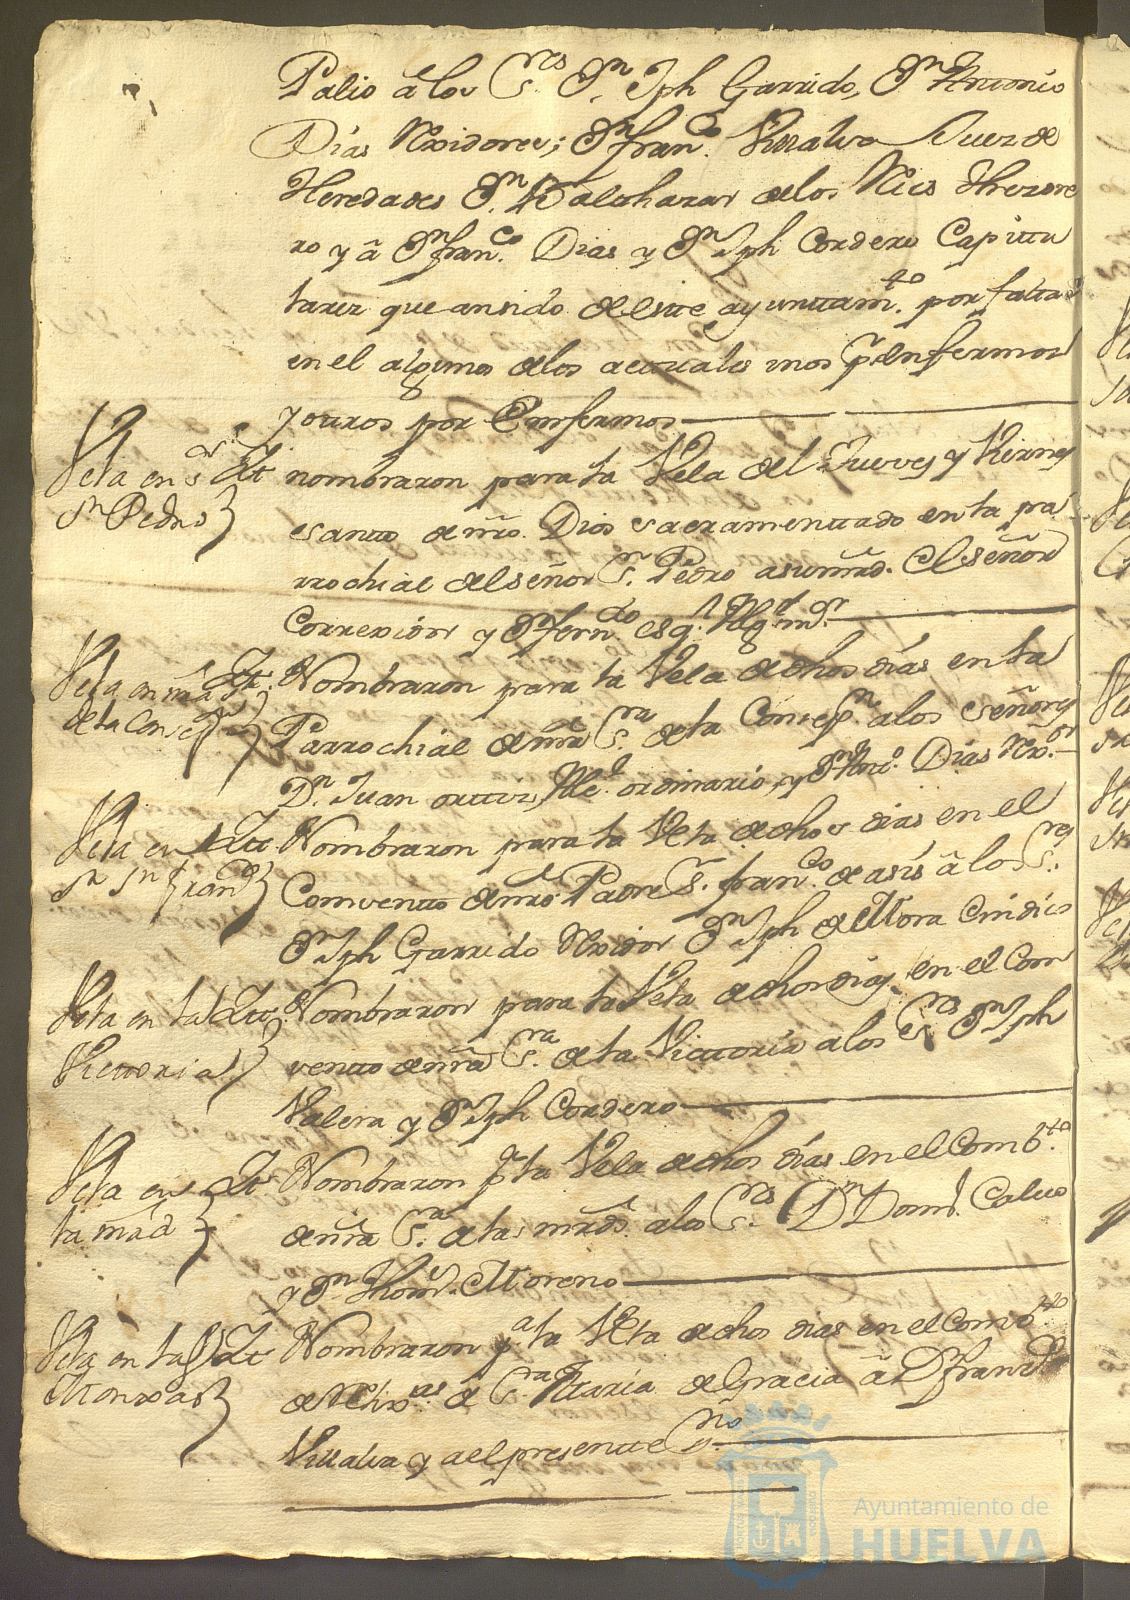 Palio â los S.res D.n Jph Garrido, D.n Antonio
Días Rexidores; D.n fran.co Villalva Juez de
Heredades D.n Balthazar de los Ries
ro y â D.n fran.co Dias y D.n Jph Cordero Capitu
lares que an sido de este ayuntam.to por falta
en el algunos de los actuales unos p.r Enfermos
y otros por Enfermos
Vela en S.r
S.n Pedro
Yt nombraron para la Vela del Jueves y Viernes
santo de nro. Dios sacramentado en la pa
rrochial del señor S.n Pedro El señor
Correxidor y D.n fern.do
Vela en nra S.ra
de la Consep.n
Yt. Nombraron para la Vela de dhos días en la
Parrochial de nra S.ra de la Consep.n a los señores
D.n Juan ortiz Alc.e ordinario, y D.n Ant.o Días Rex.or
Vela en
S.r S.n fran.co
Yt Nombraron para la Vela de dhos dias en el
Convento de nro Padre S.n fran.co de asis â los S.res
D.n Jph Garrido Rexidor D.n Jph de Mora Cindico
Vela en la
Victoria
Yt Nombraron para la Vela de dhos dias en el Com
vento de nra S.ra de la Victoria a los S.res D.n Jph
Valera y D.n Jph Cordero
Vela en
la mrcd
Yt Nombraron p.a la Vela de dhos días en el Comb.to
de nra S.ra de las mrcds. a los S.res D.n Dom.o Calvo
y D.n Thom.s Moreno
Vela en las
Monxas
Yt Nombraron p.a la Vela de dhos dias en el Comb.to
de Relix.as de S.ta Maria de Gracia â D.n fran.co
Villalva y a el presente S.no
Ayuntamiento de
HUELVA